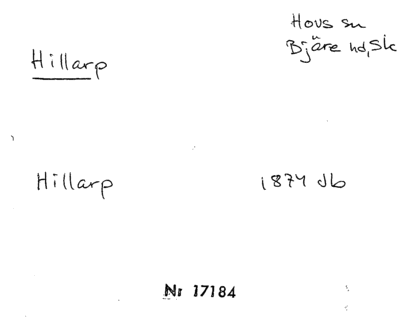 Hovs sn
Bjäre hd, Sk
Hillarp
Hillarp 1874 db
Nr 17184